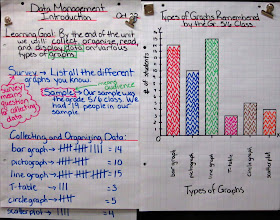 Data Management
Introduction Oct. 22
Learning Goal: By the end of the unit
we will collect, organize, read,
and display data on various
types of graphs.
Survey → List all the different
graphs you know.
audience
Survey
means
question
for collecting
data
Sample → Our sample was
the grade 5/6 class. We
had 19 people in our
sample.
Collecting and Organizing Data:
bar graph → = 14
pictograph → = 10
line graph → = 15
T-table → = 3
circle graph → = 5
scatterplot → = 4
Types of Graphs Remembered
by the Gr. 5/6 Class
# of students
bar graph
pictograph
line graph
T-table
circle graph
scatterplot
Types of Graphs